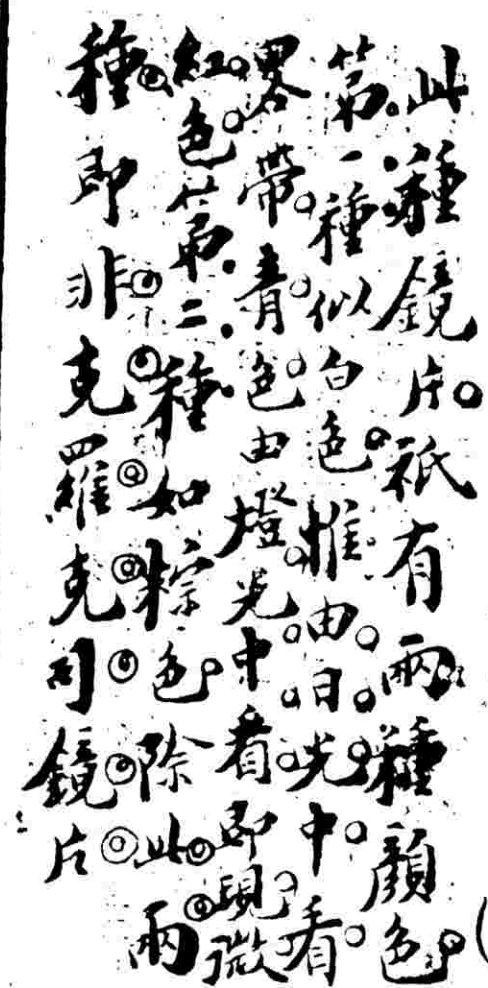 此種鏡片祇有兩種顏色
第一種似白色惟由日光中看
畧帶青色由燈光中看即現微
紅色第二種如棕色除此兩
種即非克羅克司鏡片